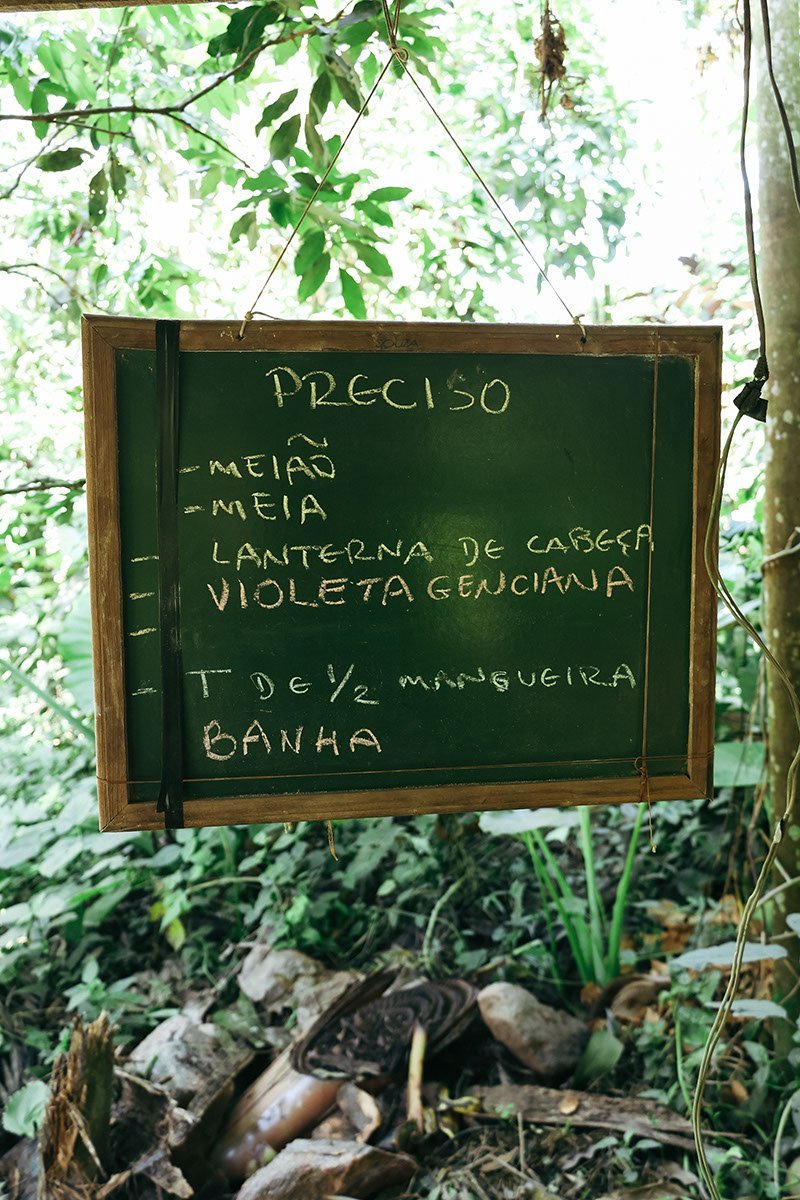 PRECISO
- MEIÃO
- MEIA
- LANTERNA DE CABEÇA
- VIOLETA GENCIANA
-
- T DE 1/2 MANGUEIRA
BANHA